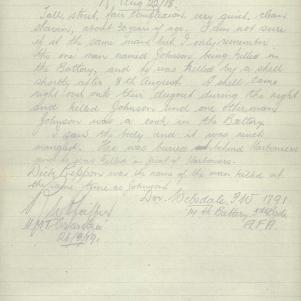 18, Aug 20/18.
Tall, stout, fair complexion, very quiet, clean
shaven, about 30 years of age. I am not sure
if it the same man but I only remember
the one man named Johnson being killed in
the Battery, and he was killed by a shell
shortly after 8th August. A shell came
right over onto their dugout during the night
and killed Johnson and one other man
Johnson was a cook in the Battery.
I saw the body and it was much
mangled. He was buried behind Harboniers
and he was killed in front of Harboniers.
Dick Gippon was the name of the man killed at
the same time as Johnson.
Dvr. 1791.
Battery,
A.F.A.
H.M.T.